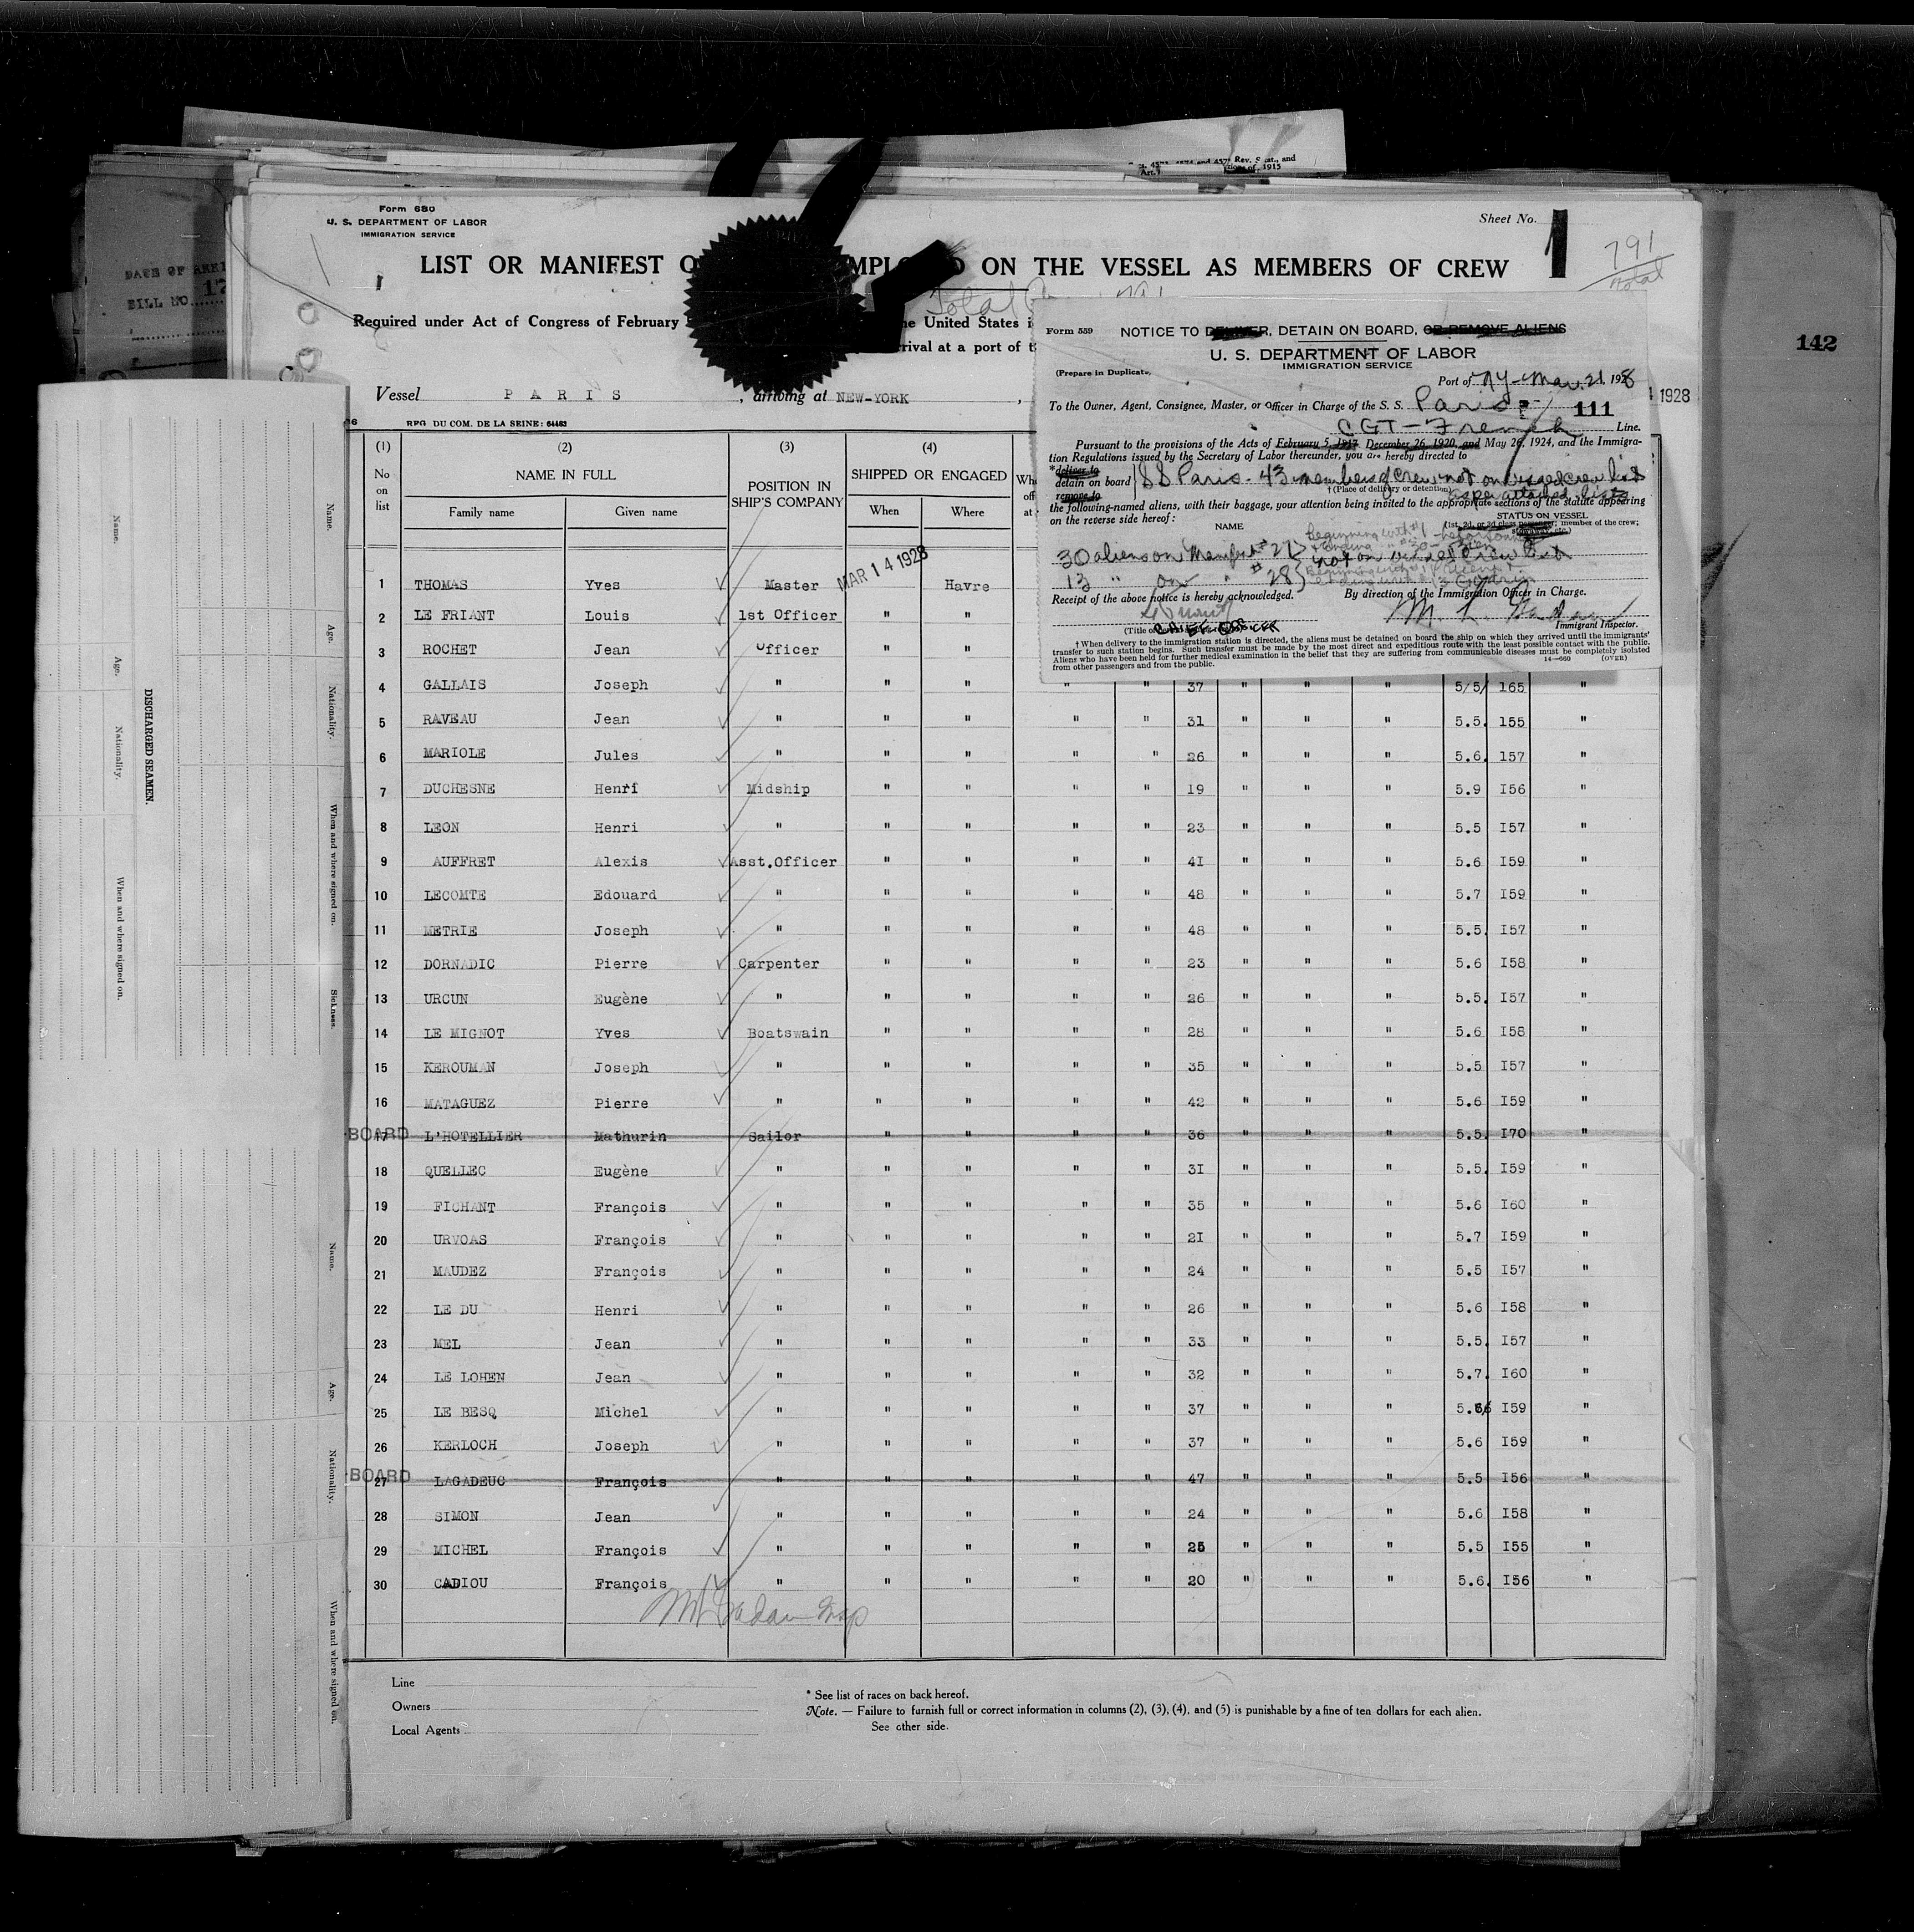 Rev. Stat., and
1915
Form 680
U. S. DEPARTMENT OF LABOR
IMMIGRATION SERVICE
Sheet No. 1
791
total
LIST OR MANIFEST O ON THE VESSEL AS MEMBERS OF CREW
Required under Act of Congress of February the United States
arrival at a port of
Vessel PARIS, arriving at NEW-YORK,
1928
142
DATE OF
BILL NO. 17
REG. DU COM. DE LA SEINE: 64463
Form 559
NOTICE TO DELIVER, DETAIN ON BOARD, OR REMOVE ALIENS
U. S. DEPARTMENT OF LABOR
IMMIGRATION SERVICE
(Prepare in Duplicate)
Port of NY - Mar 21, 1928
To the Owner, Agent, Consignee, Master, or Officer in Charge of the S. S. Paris 111
CGT - French Line.
Pursuant to the provisions of the Acts of February 5, 1917, December 26, 1920, and May 26, 1924, and the Immigra-
tion Regulations issued by the Secretary of Labor thereunder, you are hereby directed to
*deliver to
detain on board SS Paris - 43 members of crew not on visaed crew list
remove to †(Place of delivery or detention) as per attached lists
the following-named aliens, with their baggage, your attention being invited to the appropriate sections of the statute appearing
on the reverse side hereof:
NAME
STATUS ON VESSEL
(1st, 2d, or 3d class passenger; member of the crew;
30 aliens on Manifest #27
13 " on " #28
not on visaed crew list
Receipt of the above notice is hereby acknowledged. By direction of the Immigration Officer in Charge.
Immigrant Inspector.
(Title
†When delivery to the immigration station is directed, the aliens must be detained on board the ship on which they arrived until the immigrants'
transfer to such station begins. Such transfer must be made by the most direct and expeditious route with the least possible contact with the public.
Aliens who have been held for further medical examination in the belief that they are suffering from communicable diseases must be completely isolated
from other passengers and from the public.
14—660 (OVER)
(1) (2) (3) (4)
No on list NAME IN FULL POSITION IN SHIP'S COMPANY SHIPPED OR ENGAGED
Family name Given name When Where
1 THOMAS Yves Master MAR 14 1928 Havre
2 LE FRIANT Louis 1st Officer " "
3 ROCHET Jean Officer " "
4 GALLAIS Joseph " " " " " 37 " " " 5/5/ 165 "
5 RAVEAU Jean " " " " " 31 " " " 5.5. 155 "
6 MARIOLE Jules " " " " " 26 " " " 5.6. 157 "
7 DUCHESNE Henri Midship " " " " 19 " " " 5.9 I56 "
8 LEON Henri " " " " " 23 " " " 5.5 I57 "
9 AUFFRET Alexis Asst.Officer " " " " 4I " " " 5.6 I59 "
10 LECOMTE Edouard " " " " " 48 " " " 5.7 I59 "
11 METRIE Joseph " " " " " 48 " " " 5.5. I57 "
12 DORNADIC Pierre Carpenter " " " " 23 " " " 5.6 I58 "
13 URCUN Eugène " " " " " 26 " " " 5.5. I57 "
14 LE MIGNOT Yves Boatswain " " " " 28 " " " 5.6 I58 "
15 KEROUMAN Joseph " " " " " 35 " " " 5.5 I57 "
16 MATAGUEZ Pierre " " " " " 42 " " " 5.6 I59 "
BOARD 17 L'HOTELLIER Mathurin Sailor " " " " 36 " " " 5.5. I70 "
18 QUELLEC Eugène " " " " " 3I " " " 5.5. I59 "
19 FICHANT François " " " " " 35 " " " 5.6 I60 "
20 URVOAS François " " " " " 2I " " " 5.7 I59 "
21 MAUDEZ François " " " " " 24 " " " 5.5 I57 "
22 LE DU Henri " " " " " 26 " " " 5.6 I58 "
23 MEL Jean " " " " " 33 " " " 5.5. I57 "
24 LE LOHEN Jean " " " " " 32 " " " 5.7. I60 "
25 LE BESQ Michel " " " " " 37 " " " 5.6 I59 "
26 KERLOCH Joseph " " " " " 37 " " " 5.6 I59 "
BOARD 27 LAGADEUC François " " " " " 47 " " " 5.5 I56 "
28 SIMON Jean " " " " " 24 " " " 5.6 I58 "
29 MICHEL François " " " " " 25 " " " 5.5 I55 "
30 CADIOU François " " " " " 20 " " " 5.6. I56 "
Line
Owners
Local Agents
* See list of races on back hereof.
Note. — Failure to furnish full or correct information in columns (2), (3), (4), and (5) is punishable by a fine of ten dollars for each alien.
See other side.
DISCHARGED SEAMEN.
Name. Age. Nationality. When and where signed on.
Name. Age. Nationality. When and where signed on. Sickness.
Name. Age. Nationality. When and where signed on.